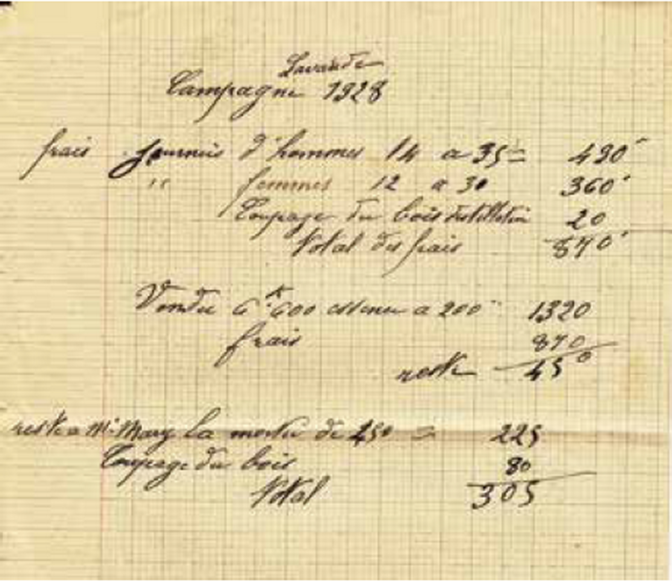 Lavande
Campagne 1928
frais journeis d'hommes 14 a 35 = 490
" femmes 12 a 30 360
Coupage du bois distillation 20
Total des frais 870
Vendu 6K600 essence a 200 1320
frais 870
reste 450
reste a Mr Mary la moitié de 450 = 225
Coupage du bois 80
Total 305